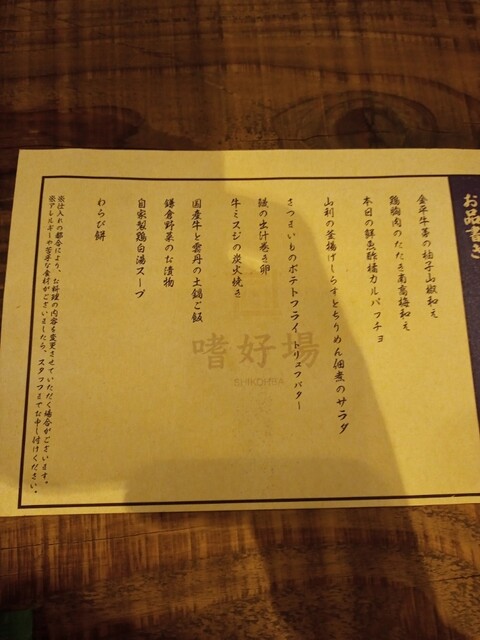 お品書き
金平牛蒡の柚子山椒和え
鶏胸肉のたたき南高梅和え
本日の鮮魚酢橘カルパッチョ
山利の釜揚げしらすとちりめん佃煮のサラダ
さつまいものポテトフライ トリュフバター
鰻の出汁巻き卵
牛ミスジの炭火焼き
国産牛と雲丹の土鍋ご飯
鎌倉野菜のお漬物
自家製鶏白湯スープ
わらび餅
※仕入れの都合により、お料理の内容を変更させていただく場合がございます。
※アレルギーや苦手な食材がございましたら、スタッフまでお申し付けください。
嗜好場
SHIKOHBA